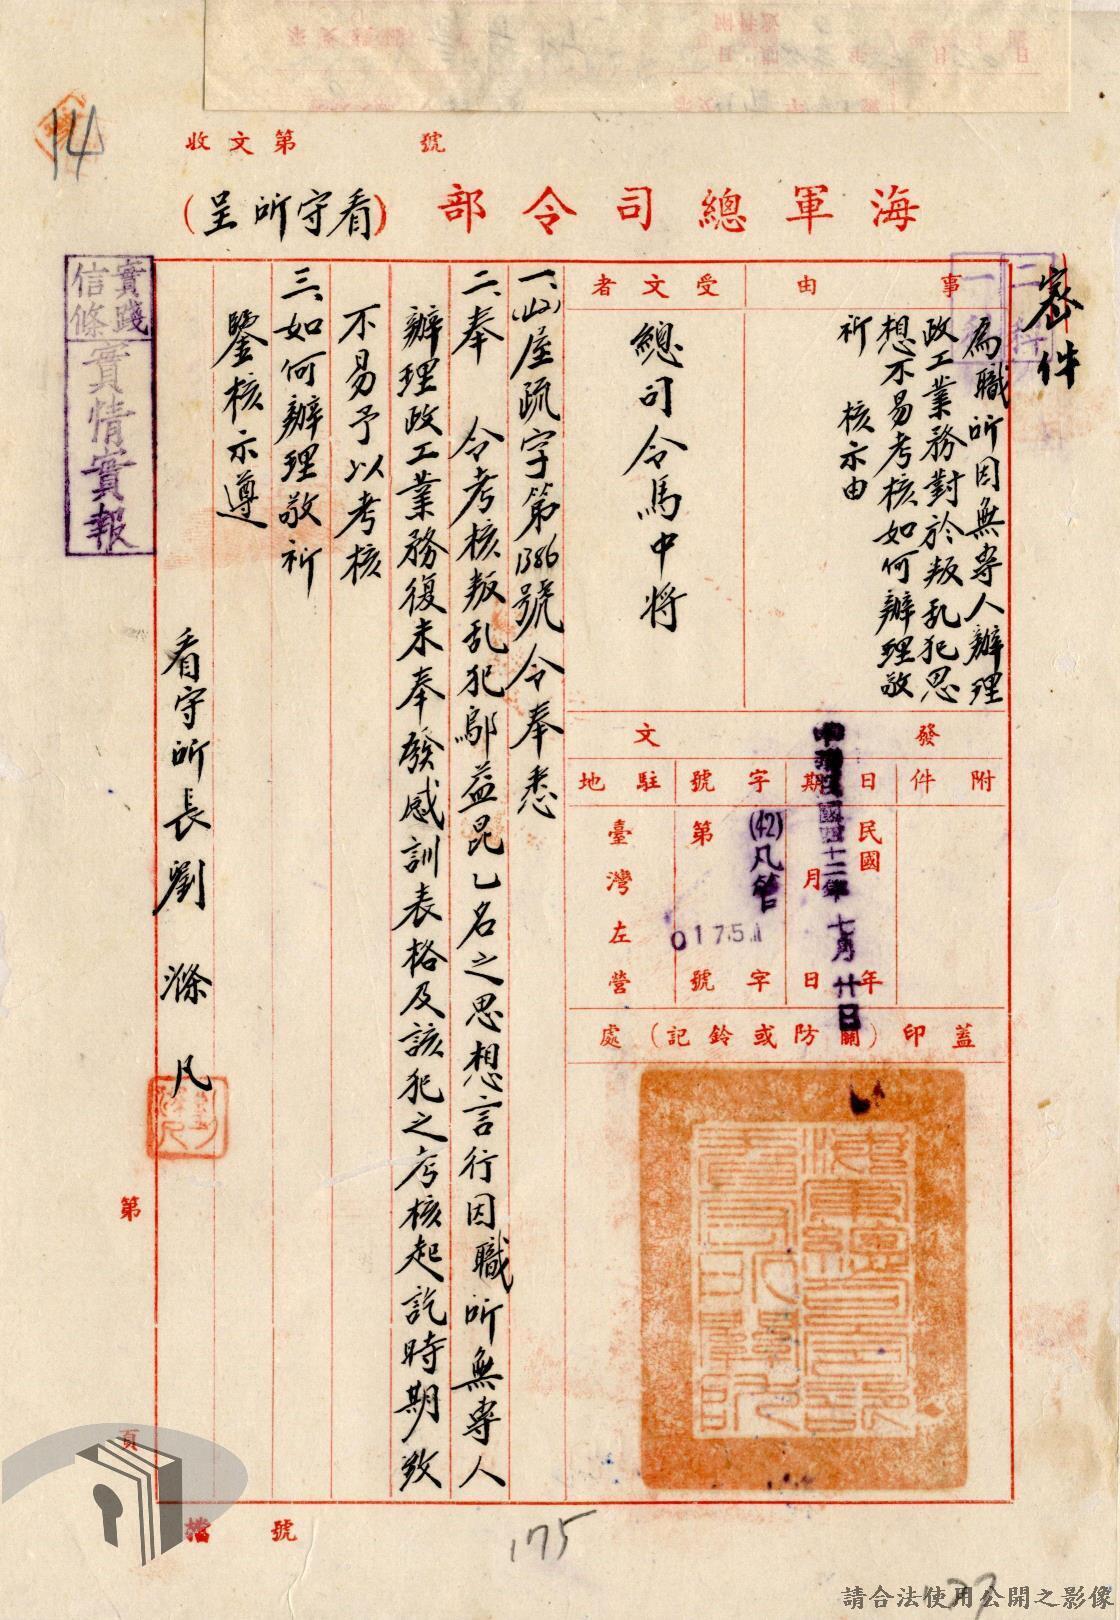 14
收文第 號
海軍總司令部(看守所呈)
密件
二科
事由
為職所因無專人辦理
政工業務對於叛乱犯思
想不易考核如何辦理敬
祈 核示由
受文者
總司令馬中將
發文
附件
日期
中華民國四十二年七月廿日
民國 年 月 日
字號
(42)凡管 字
第 01751 號
駐地
臺灣左營
蓋印(關防或鈐記)處
一、(42)屋疏字第1386號令奉悉
二、奉 令考核叛乱犯鄔益昆乙名之思想言行因職所無專人
辦理政工業務復未奉發感訓表格及該犯之考核起訖時期致
不易予以考核
三、如何辦理敬祈
鑒核示遵
看守所長劉滌凡
實踐
信條
實情實報
第 頁
檔號
175
請合法使用公開之影像